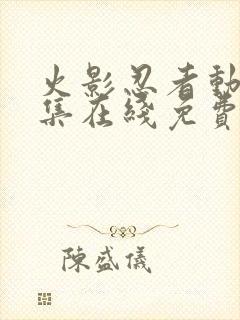 火影忍者動
集在綫免費
陳盛儀